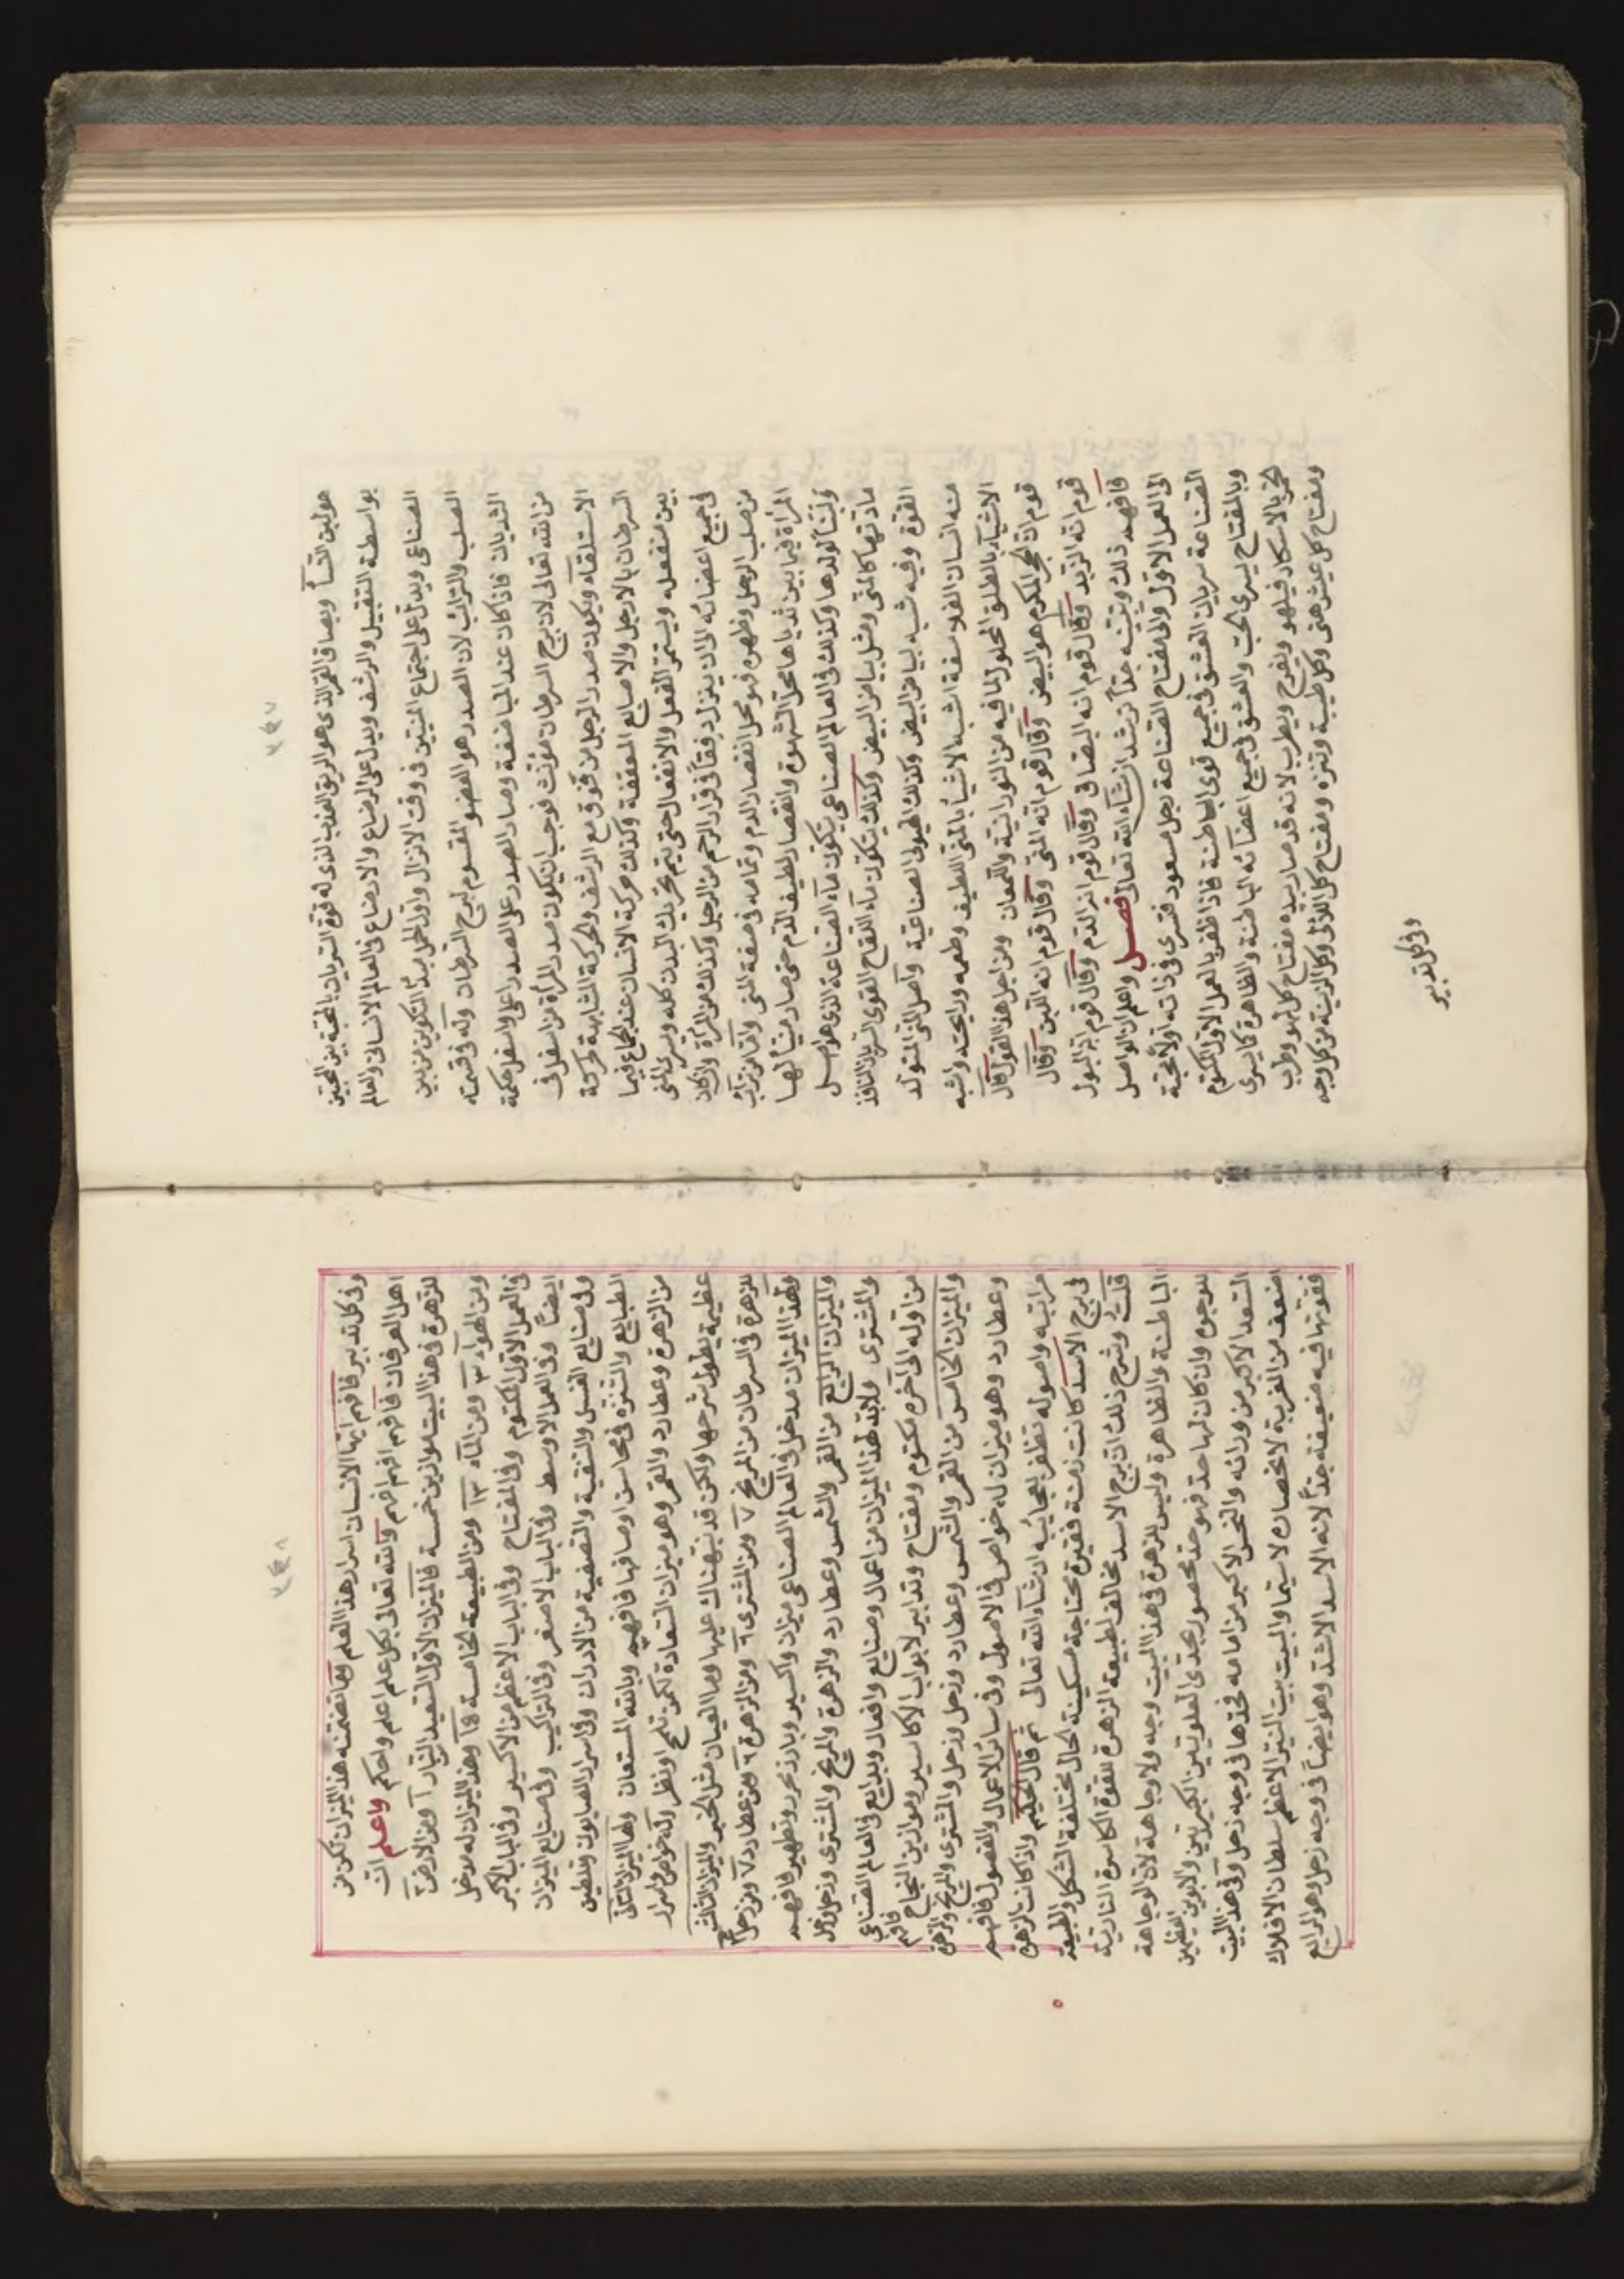 ٢٤٧
هو لبن النسآ وبصاق القمر الذى هو الريق العذب الذى له قوة السريان بالمحبة بين المحبين
بواسطة التقبيل والرشف ويدل على الرضاع والارضاع فى العالم الانسانى والعالم
الصناعى ويدل على اجتماع المنيين فى وقت الانزال واول الحمل مبدأ التكوين من بين
الصلب والترائب لان الصدر هو العضو المقسوم لبرج السرطان وله فى قسمته
الثديان فاذا كان عند المباضعة وصار الصدر على الصدر اعلى واسفل حكمة
من الله تعالى لان برج السرطان مؤنث فوجب ان يكون صدر المرأة من اسفل فى
الاستلقاء ويكون صدر الرجل من فوق مع الرشف والحركة المشابهة لحركة
السرطان بالارجل والاصابع المعقفة وكذلك حركة الانسان عند الجماع فيما
بين منفعله ويستمر الفعل والانفعال حتى يتم تحريك البدن كله ويسرى المنى
فى جميع اعضائه الى ان ينزل دفقاً فى قرار الرحم من الرجل وكذلك من المرأة وان كان
من صلب الرجل وظهره فهو محل انفصار الدم وتمامه فى صفة المنى واما من ترائب
المرأة فيما بين ثدياها محل الشهوة وانفصار لطيف الدم حتى صار منيّاً لها
ولبناً لولدها وكذلك فى العالم الصناعى يتكون مآء الصناعة الذى هو اصل
مادتها كالمنى ومثل بياض البيض وكذلك يتكون مآء اللقاح القوى السريان النافذ
القوة وفيه شبه لبياض البيض وكذلك الهيولى الصناعية واصل المنى المتولد
منه انسان الفلاسفة اشبه الاشيآء بالمنى اللطيف وطعمه ورايحته واشبه
الاشيآء بالطلق المحلول لما فيه من النورانية واللمعان ومن اجل هذا القول قال
قوم ان الحجر المكرم هو البيض وقال قوم انه المنى وقال قوم انه اللبن وقال
قوم انه الزبد وقال قوم انه البصاق وقال قوم انه الدم وقال قوم انه البول
فافهمه ذلك وتبينه جداً ترشد ان شآء الله تعالى فصل واعلم ان الواصل
الى العمل الاول والى مفتاح الصناعة رجل مسعود فتسرى فى ذاته اولا محبة
الصناعة سريان العشق فى جميع قوى الباطنة فاذا ظفر بالعمل الاول المكتوم
وبالمفتاح يسرى الحب والعشق فى جميع اعضآئه الباطنة والظاهرة كما يسرى
الخمر بالاسكار فيلهو ويفرح ويطرب لانه قد صار بيده مفتاح كل لهو وطرب
ومفتاح كل عيش هنى وكل طيبة وتنزه ومفتاح كل اللآلى وكل الزينة من كل وجه
وفى كل تدبير
٢٤٨
وفى كل تدبير فافهم ايها الانسان اسرار هذا العلم وما تضمنه هذا الميزان تكن من
اهل العرفان فافهم افهم افهم والله تعالى بكل علم اعلم واحكم واعلم ان
للزهرة فى هذا البيت موازين خمسة فالميزان الاول السعيد النارآ ومن الارض ٢
ومن الهوآء ٣ ومن المآء ١٣ ومن الطبيعة الخامسة ١٩ وهذا الميزان له مدخل
فى العمل الاول المكتوم وفى المفتاح وفى الباب الاعظم من الاكسير وفى الباب الاكبر
ايضاً وفى العمل الاوسط وفى الباب الاصغر وفى التراكيب وفى صنايع الميزان
وفى صنايع الغسل والتنقية والتصفية من الادران وفى اسرار الصابون وتلطين
الطبايع والتنزه فى محاسن اوصافها فافهمه وبالله المستعان ولها الميزان الثانى
من الزهرة وعطارد والقمر وهو ميزان السعادة لكن تلمح ونظر وله خواص واسرار
عظيمة يطول شرحها ولكن قد نبهناك عليها وما العيان مثل الخبر والميزان الثالث
للزهرة فى السرطان من المريخ ٧ ومن المشترى ٦ ومن الزهرة ٦ ومن عطارد ٧ ومن زحل ٣
ولهذا الميزان مدخل فى العالم الصناعى ميزان واكسير وبارد نحرر وتطهير فافهمه
والميزان الرابع من القمر والشمس وعطارد والزهرة والمريخ والمشترى وزحل وزحل
والمشترى ولا بد لهذا الميزان من اعمال وصنايع وافعال وبدايع فى العالم الصناعى
من اوله الى آخره مكتوم ومفتاح وتدابير لابواب الاكاسير وموازين النجاح فافهم
والميزان الخامس من القمر والشمس وعطارد وزحل وزحل والمشترى والمريخ والزهرة
وعطارد وهو ميزان له خواص فى الاصول وفى سائر الاعمال والفصول فافهم
مراتبه واصوله تظفر بعجايبه ان شآء الله تعالى ثم قال الحكيم واذا كانت الزهرة
فى برج الاسد كانت زمنة فقيرة محتاجة مسكينة الحال مختلفة الشكل والطبيعة
قلت وشرح ذلك ان برج الاسد مخالف لطبيعة الزهرة للقوة الكاسرة النارية
الباطنة والظاهرة وليس للزهرة فى هذا البيت وجه ولا وجاهة لان الوجاهة
للوجوه وان كان لها حد فهو حد محصور بحدى العلويين الكبيرين والابوين العظيمين
السعد الاكبر من ورائه والنحس الاكبر من امامه فحدها فى وجه زحل وفى هذا البيت
اضعف من الغربة لانحصاره لا سيما والبيت بيت النير الاعظم سلطان الافلاك
فقوتها فيه ضعيفة جداً لانه الاسد الاشد وهو ايضاً فى وجه زحل وهو الرابع